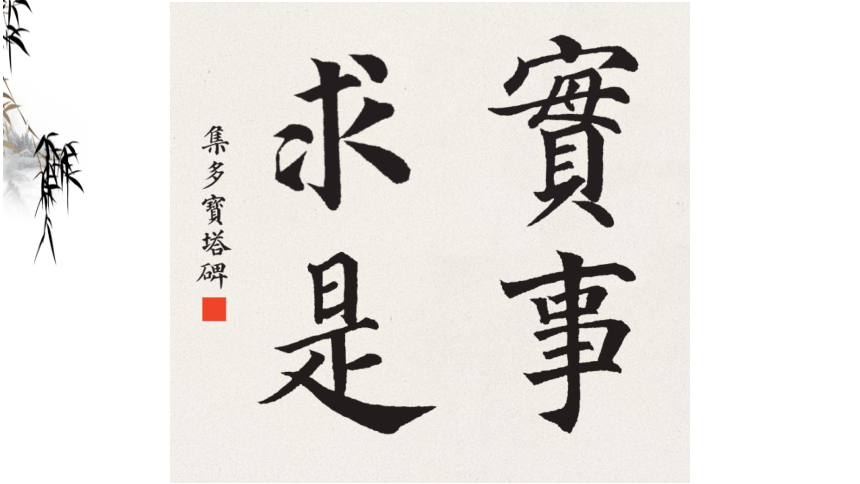 實事
求是
集多寶塔碑